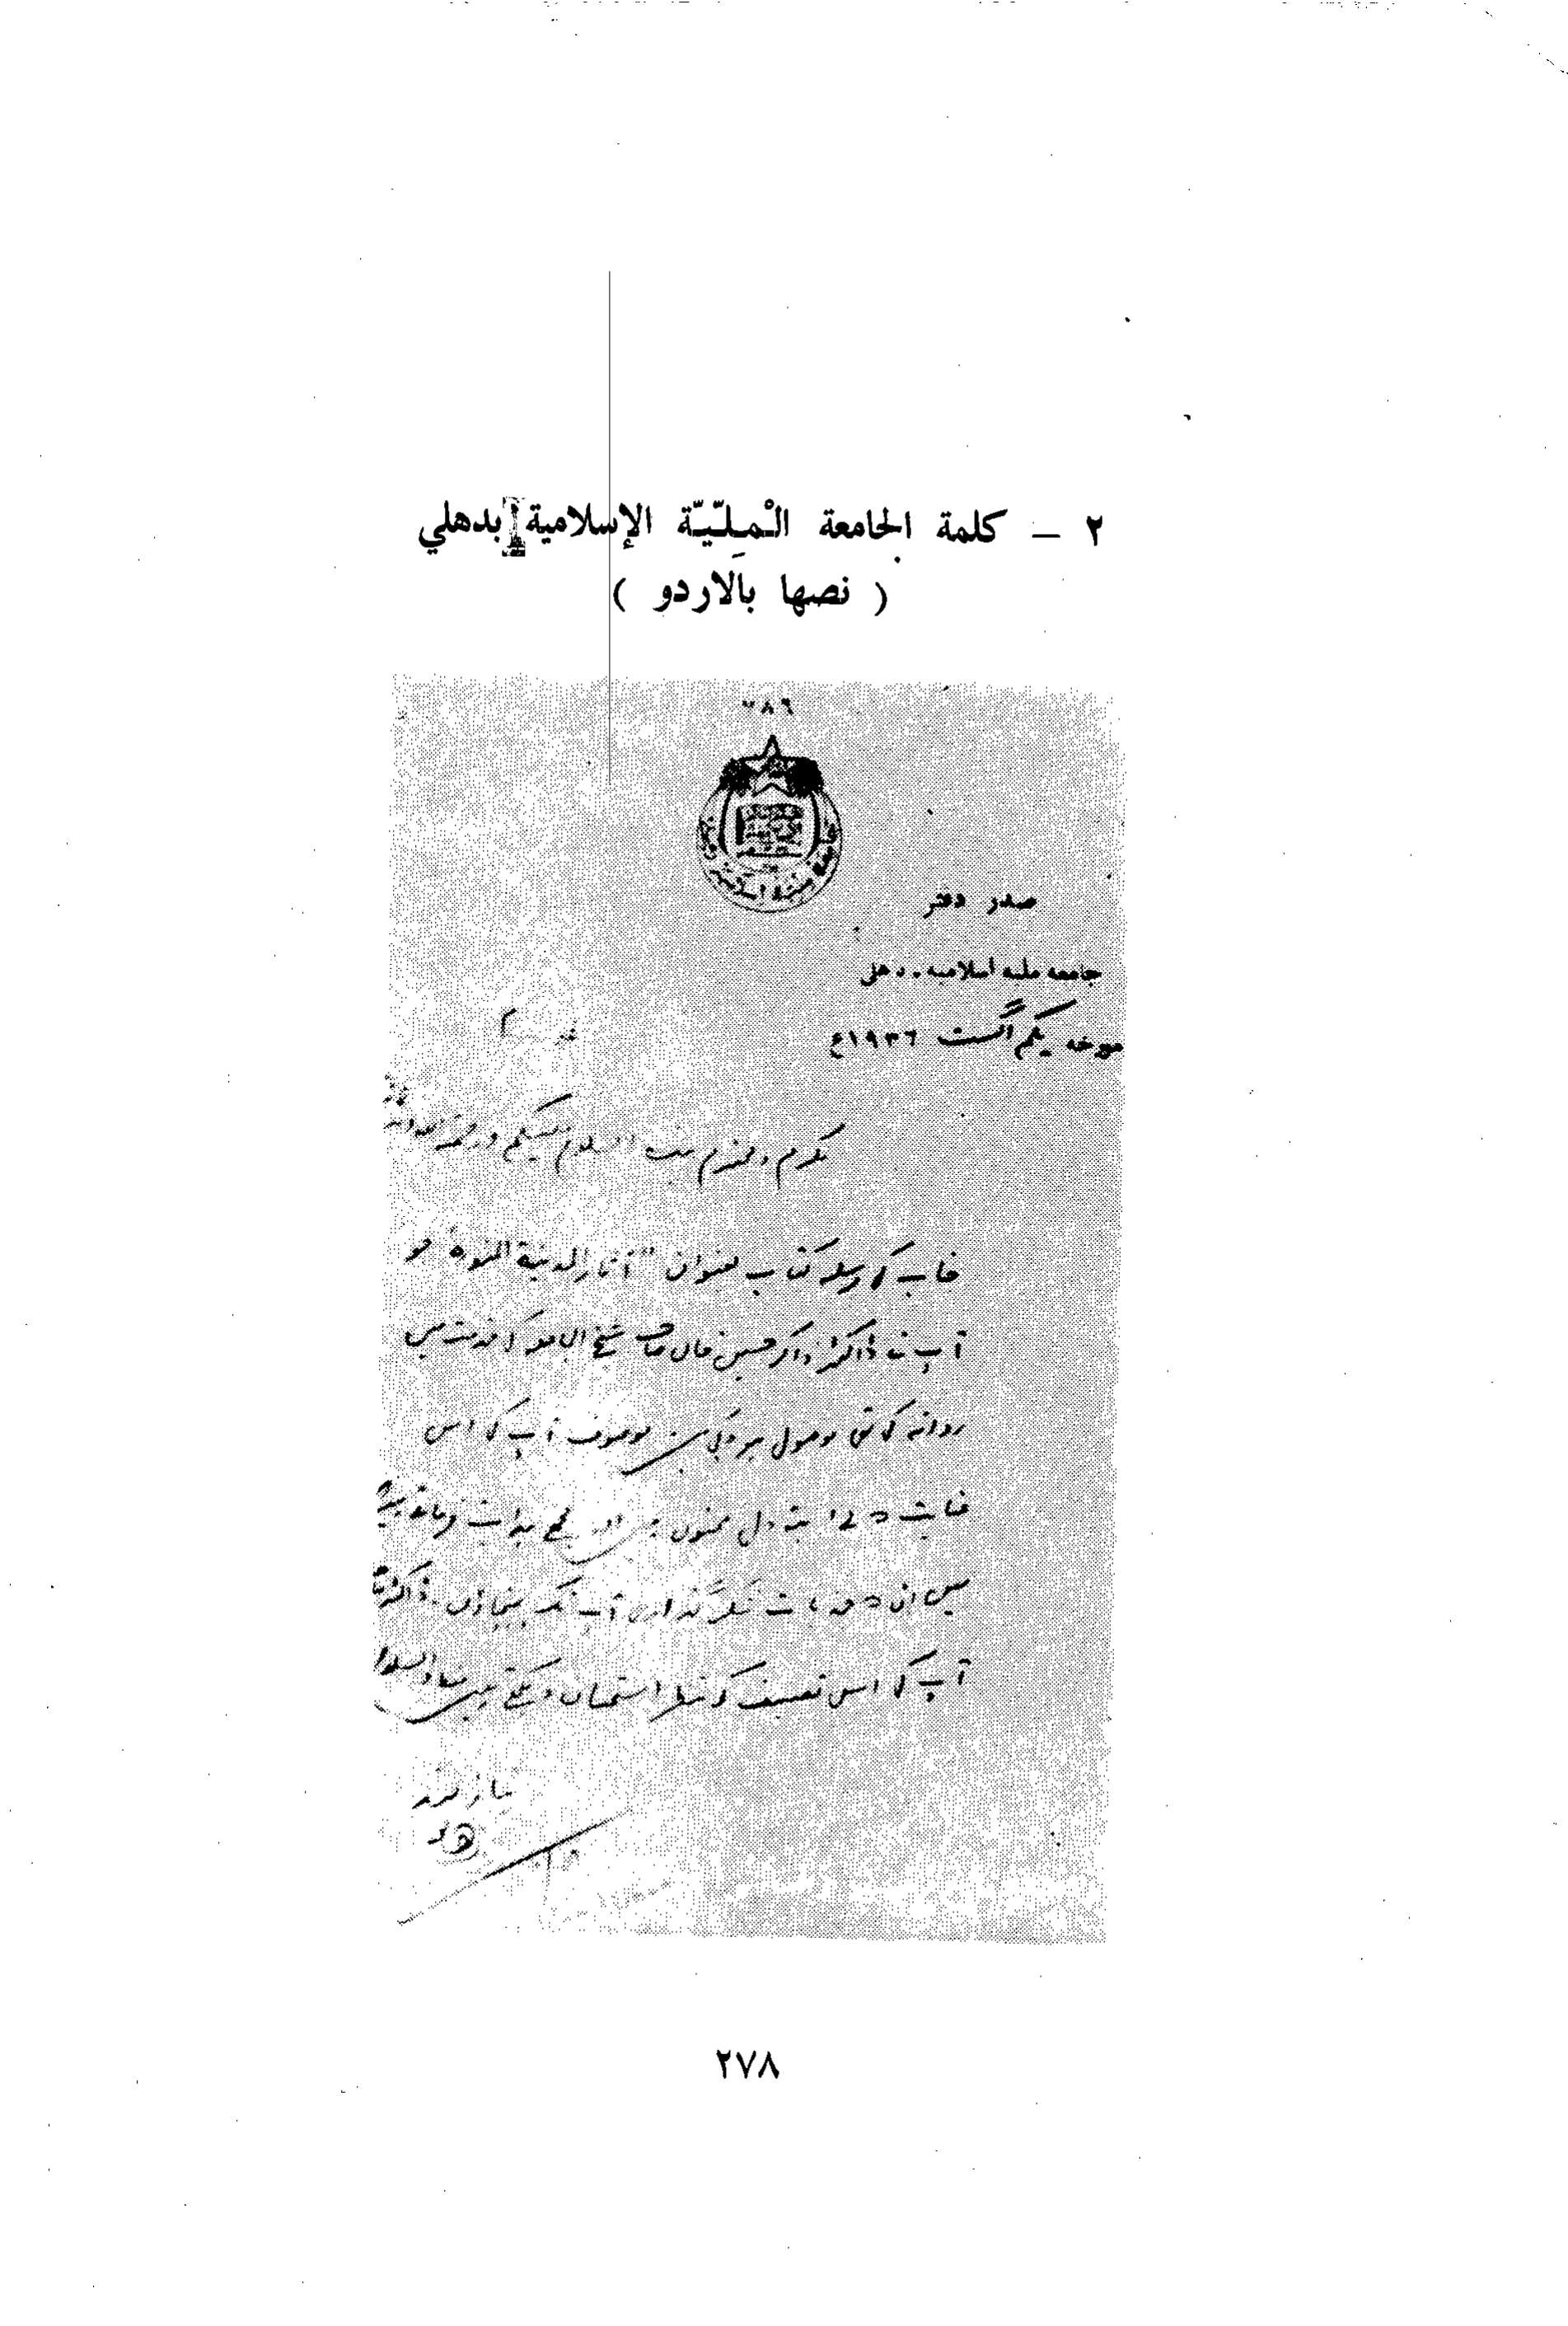 ٢ – كلمة الجامعة الْمِلِّيَّة الإسلامية بدهلي
( نصها بالاردو )
٧٨٦
صدر دفتر
جامعه ملیه اسلامیه .. دهلی
مورخه یکم اگست ١٩٣٦ع
مکرم و محترم بنده السلام علیکم ورحمة الله
کتاب بعنوان "آثار المدینة المنوره" جو
آپ نے ڈاکٹر ذاکر حسین خاں صاحب شیخ الجامعہ کی خدمت میں
روانہ کی تھی موصول ہو گئی موصوف آپ کی اس
عنایت کے لئے تہ دل ممنون ہیں اور مجھے ہدایت فرمائی
میں ان کے جذبات تشکر آپ تک پہنچاؤں
آپ کی اس تصنیف کو بنظر استحسان دیکھتے ہیں
نیازمند
٢٧٨